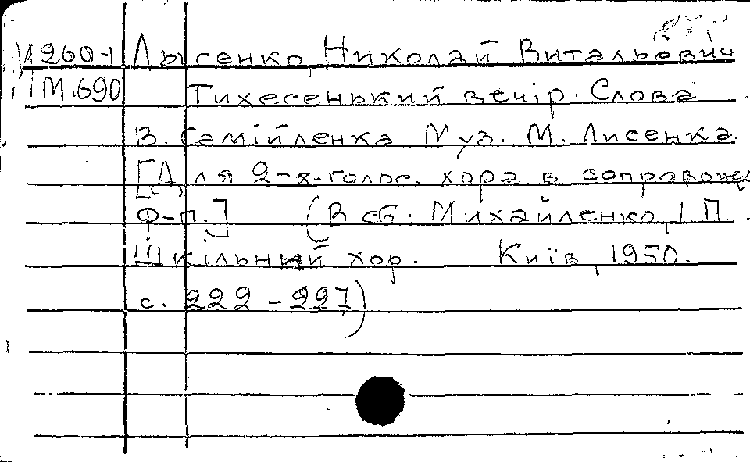 1260-1 Лысенко, Николай Витальевич
1М.690 Тихесенький вечір. Слова
В. Самійленка Муз. М. Лисенка.
[Для 2-х-голос. хора в сопровожд.
ф-п.] (В сб: Михайленко, І. П.
Шкільный хор. Київ, 1950.
с. 222-227)